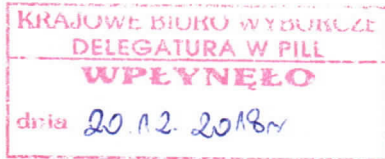 KRAJOWE BIURO WYBORCZE
DELEGATURA W PILE
WPŁYNĘŁO
dnia 20.12.2018r